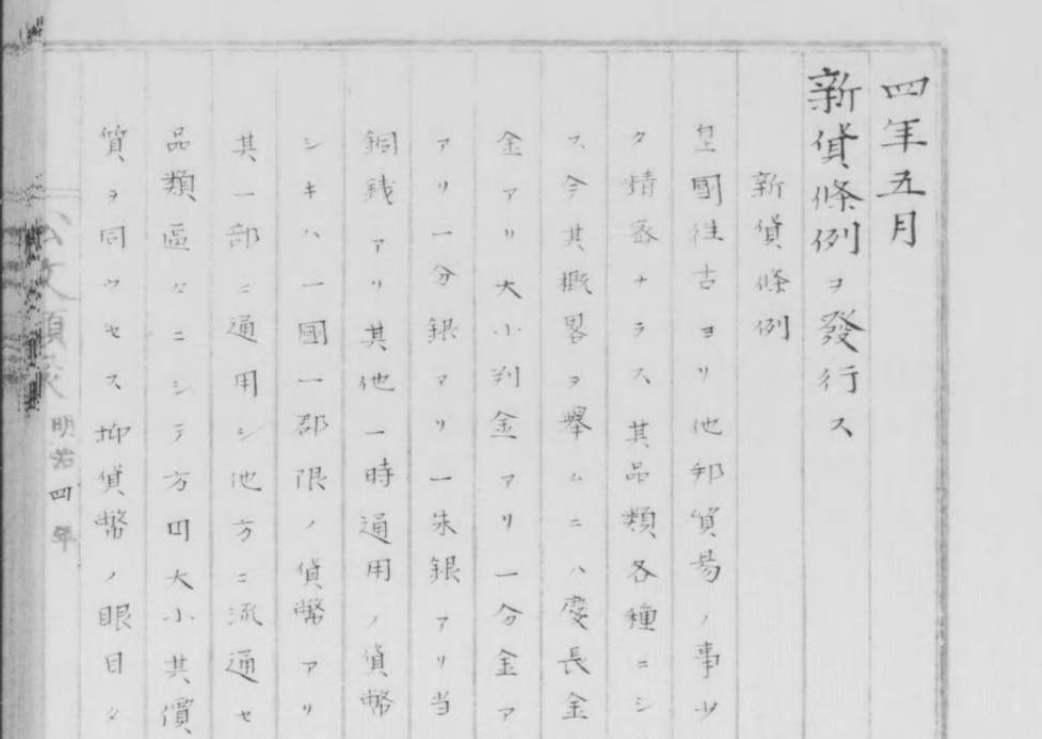 四年五月
新貨條例ヲ發行ス
新貨條例
皇國往古ヨリ他邦貿易ノ事少
タ精密ナラス其品類各種ニシ
ス今其概畧ヲ擧ムニハ慶長金
金アリ大小判金アリ一分金ア
アリ一分銀アリ一朱銀アリ当
銅銭アリ其他一時通用ノ貨幣
シキハ一國一郡限ノ貨幣アリ
其一部ニ通用シ他方ニ流通セ
品類區々ニシテ方円大小其價
質ヲ同ウセス抑貨幣ノ眼目タ
公文類聚 明治四年